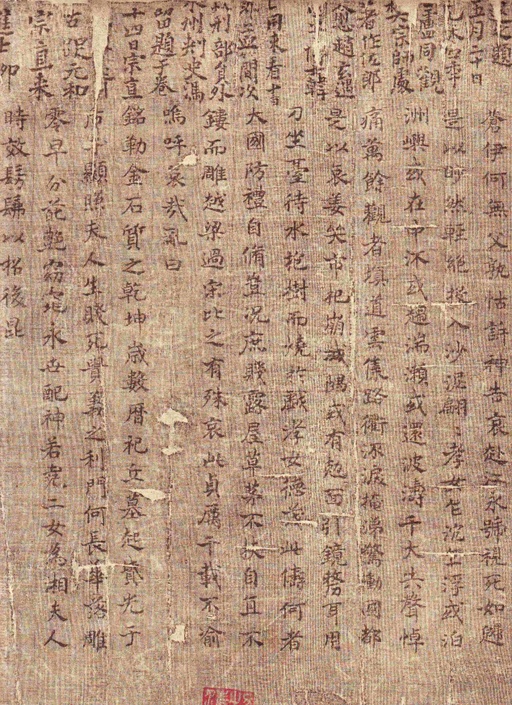 之題
五月二十日
盧同觀
著作佐郎
愈趙玄遇
刑部員外
留題于卷
永州刺史馮
十四日宗直
宗直來
蒼伊何無父孰怙訴神告哀赴江永號視死如歸
是以眇然輕絕投入沙泥翩〻孝女乍沉乍浮或泊
洲嶼或在中流或趨湍瀨或還波濤千夫失聲悼
痛萬餘觀者填道雲集路衢流淚掩涕驚動國都
是以哀姜哭市杞崩城隅或有尅面引鏡剺耳用
刀坐臺待水抱樹而燒於戲孝女德茂此儔何者
大國防禮自脩豈況庶賤露屋草茅不扶自直不
鏤而雕越梁過宋比之有殊哀此貞厲千載不渝
嗚呼哀哉亂曰
銘勒金石質之乾坤歲數曆祀丘墓起墳光于
后土顯照夫人生賤死貴義之利門何長華落雕
零早分葩艷窈窕永世配神若堯二女為湘夫人
時效髣髴以招後昆